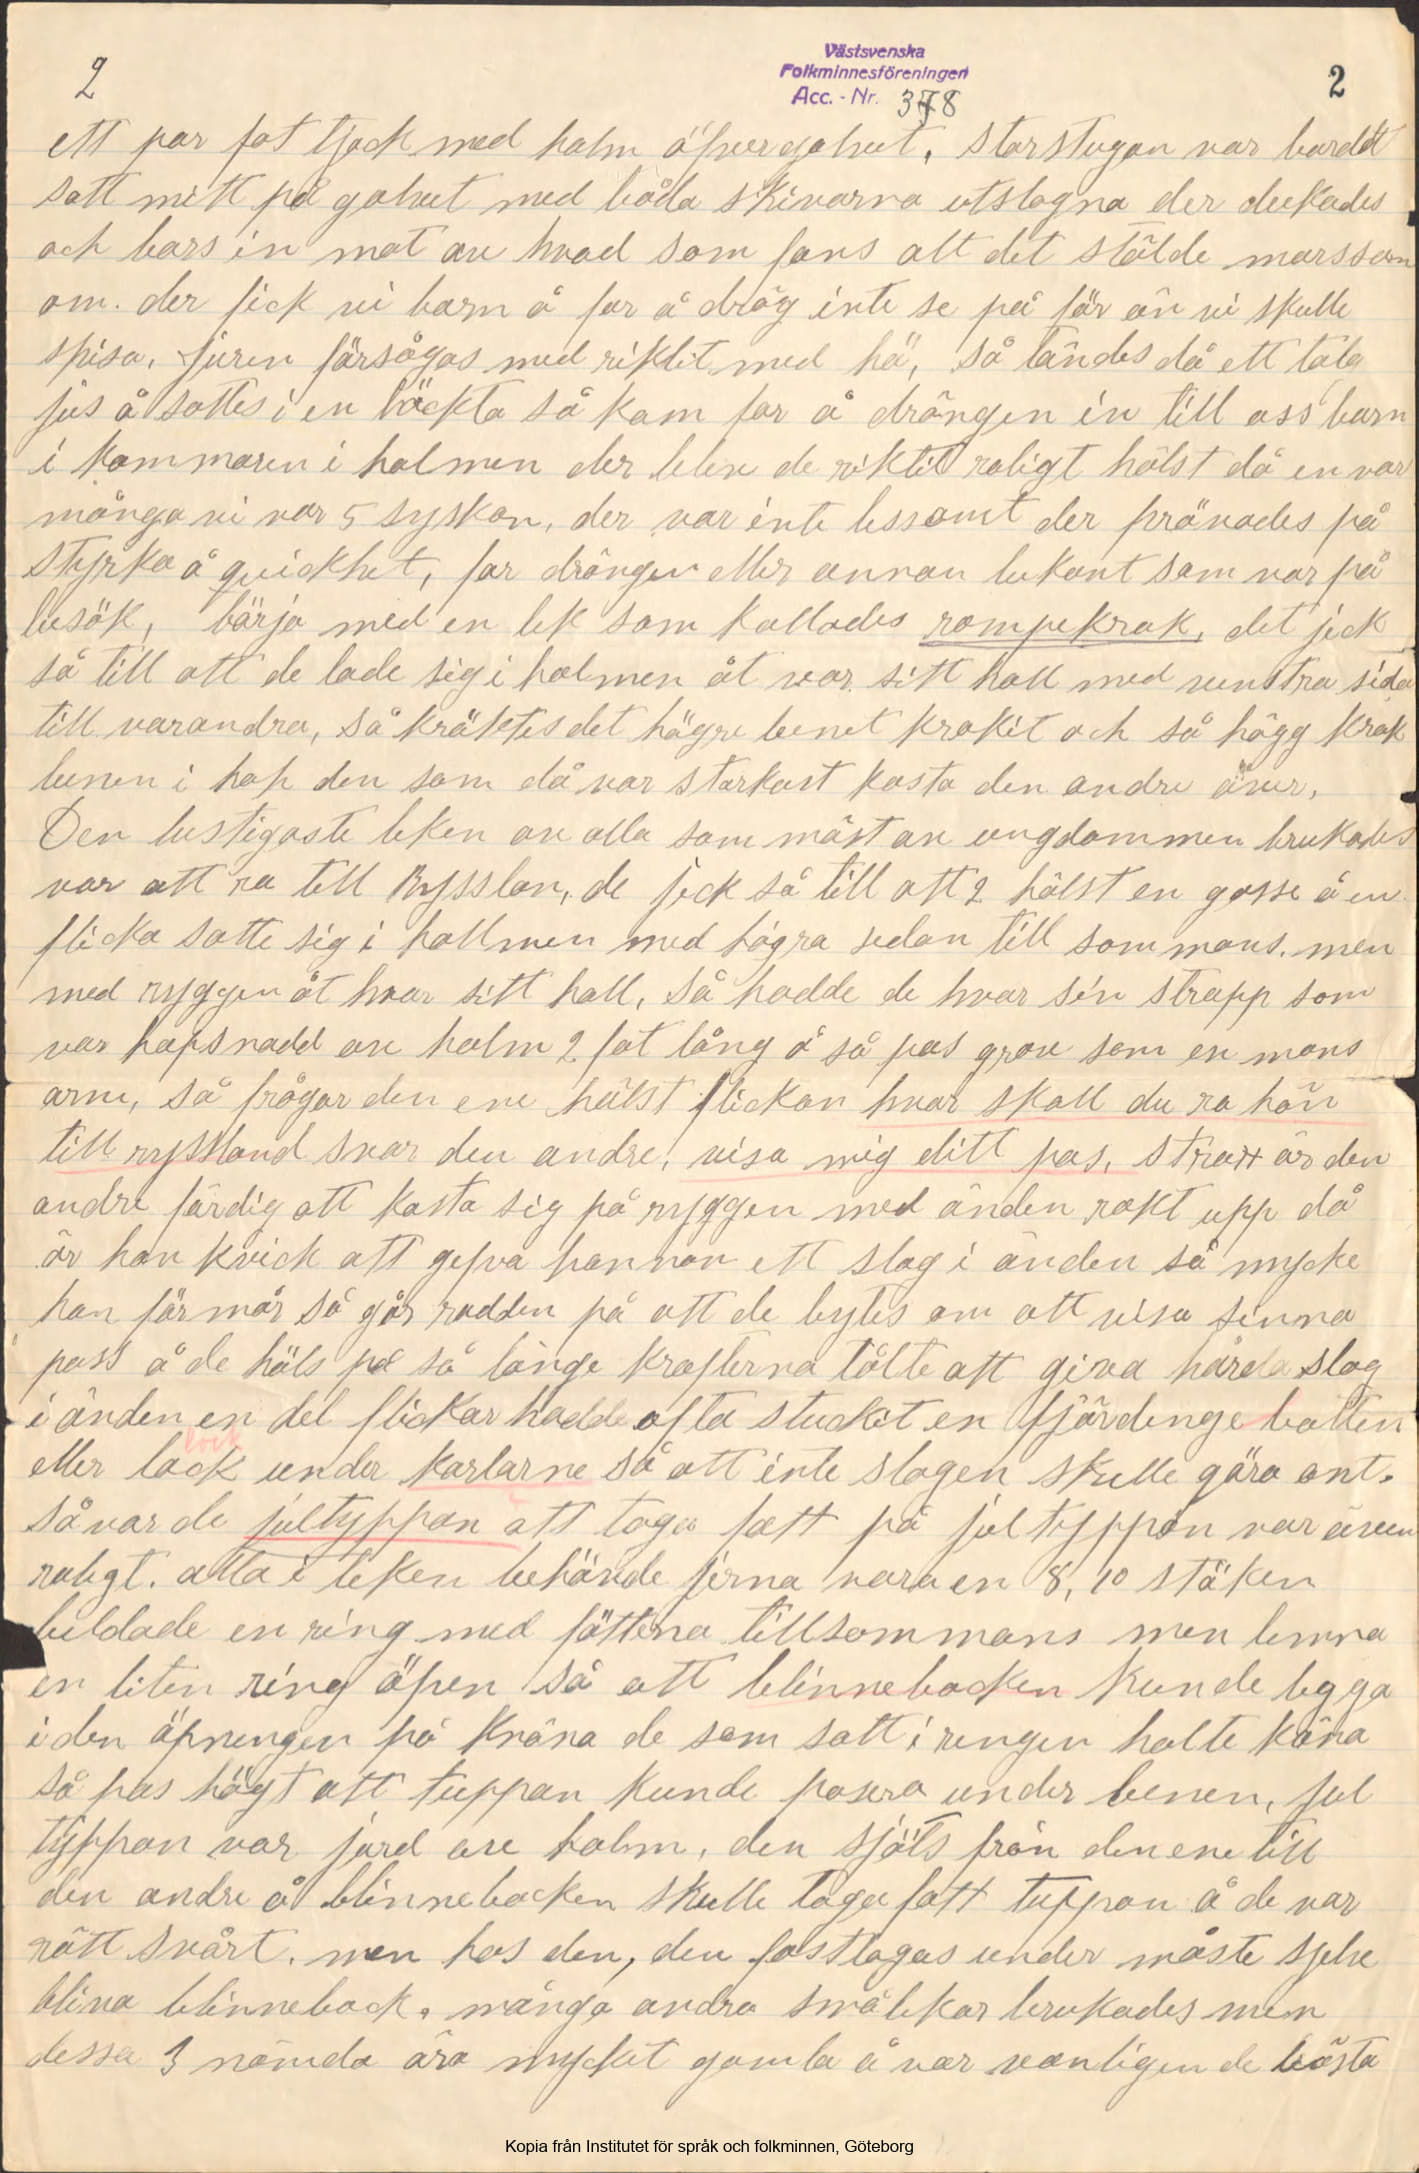 2
Västsvenska
Folkminnesföreningen
Acc. - Nr. 378
2
ett par fot tjock med halm öfver golvet, storstugan var bordet
satt mitt på golvet med båda skivorna utslagna der dukades
och bars in mat av hvad som fans alt det stälde morssan
om. der fick vi barn å far å dräg inte se på för än vi skulle
spisa, juren försågas med riktit med hö, så tändes då ett talg
jus å sattes i en läckta så kom far å drängen in till oss barn
i kammaren i halmen der blev de riktit roligt hälst då en var
många vi var 5 syskon, der var inte lessamt der prövades på
styrka å quickhet, far drängen eller annan bekant som var på
besök, börja med en lek som kallades rompekrok, det jick
så till att de lade sig i halmen åt var sitt håll med venstra sida
till varandra, så kröktes det högre benet krokit och så högg krok
benen i hop den som då var starkast kasta den andre över,
Den lustigaste leken av alla som mäst av ungdommen brukades
var att ra till Rysslan, de jick så till att 2 hälst en gosse å en
flicka satte sig i hallmen med högra sedan till sommans. men
med ryggen åt hvar sitt håll, så hadde de hvar sin strapp som
var hopsnodd av halm 2 fot lång å så pas grov som en mans
arm, så frågar den ene hälst flickan hvar skall du ra hän
till ryssland svar den andre, visa mig ditt pas, straxt är den
andre färdig att kasta sig på ryggen med änden rakt upp då
är han kvick att gefva honnon ett slag i änden så mycke
han förmår så går radden på att de bytes om att visa sinna
pass å de höls på så länge krafterna tålte att giva hårda slag
i änden en del flickor hadde ofta stuckit en fjärdinge botten
eller lock under karlarne så att inte slagen skulle göra ont.
lock
så var de jultyppan att taga fatt på jultyppon var även
roligt. alla i leken behövde jerna vara en 8, 10 stöken
bildade en ring med föttena tillsommans men lemna
en liten ring öpen så att blinnebocken kunde ligga
i den öpningen på knäna de som satt i ringen holte knäna
så pas högt att tuppan kunde pasera under benen, jul
typpon var jord av halm, den sjöts från den ene till
den andre å blinnebocken skulle taga fatt tuppan å de var
rätt svårt. men hos den, den fasttogas under måste sjelv
bliva blinnebock, många andra smålekar brukades men
dessa 3 nämda ära mycket gamla å var vanligen de bästa
Kopia från Institutet för språk och folkminnen, Göteborg